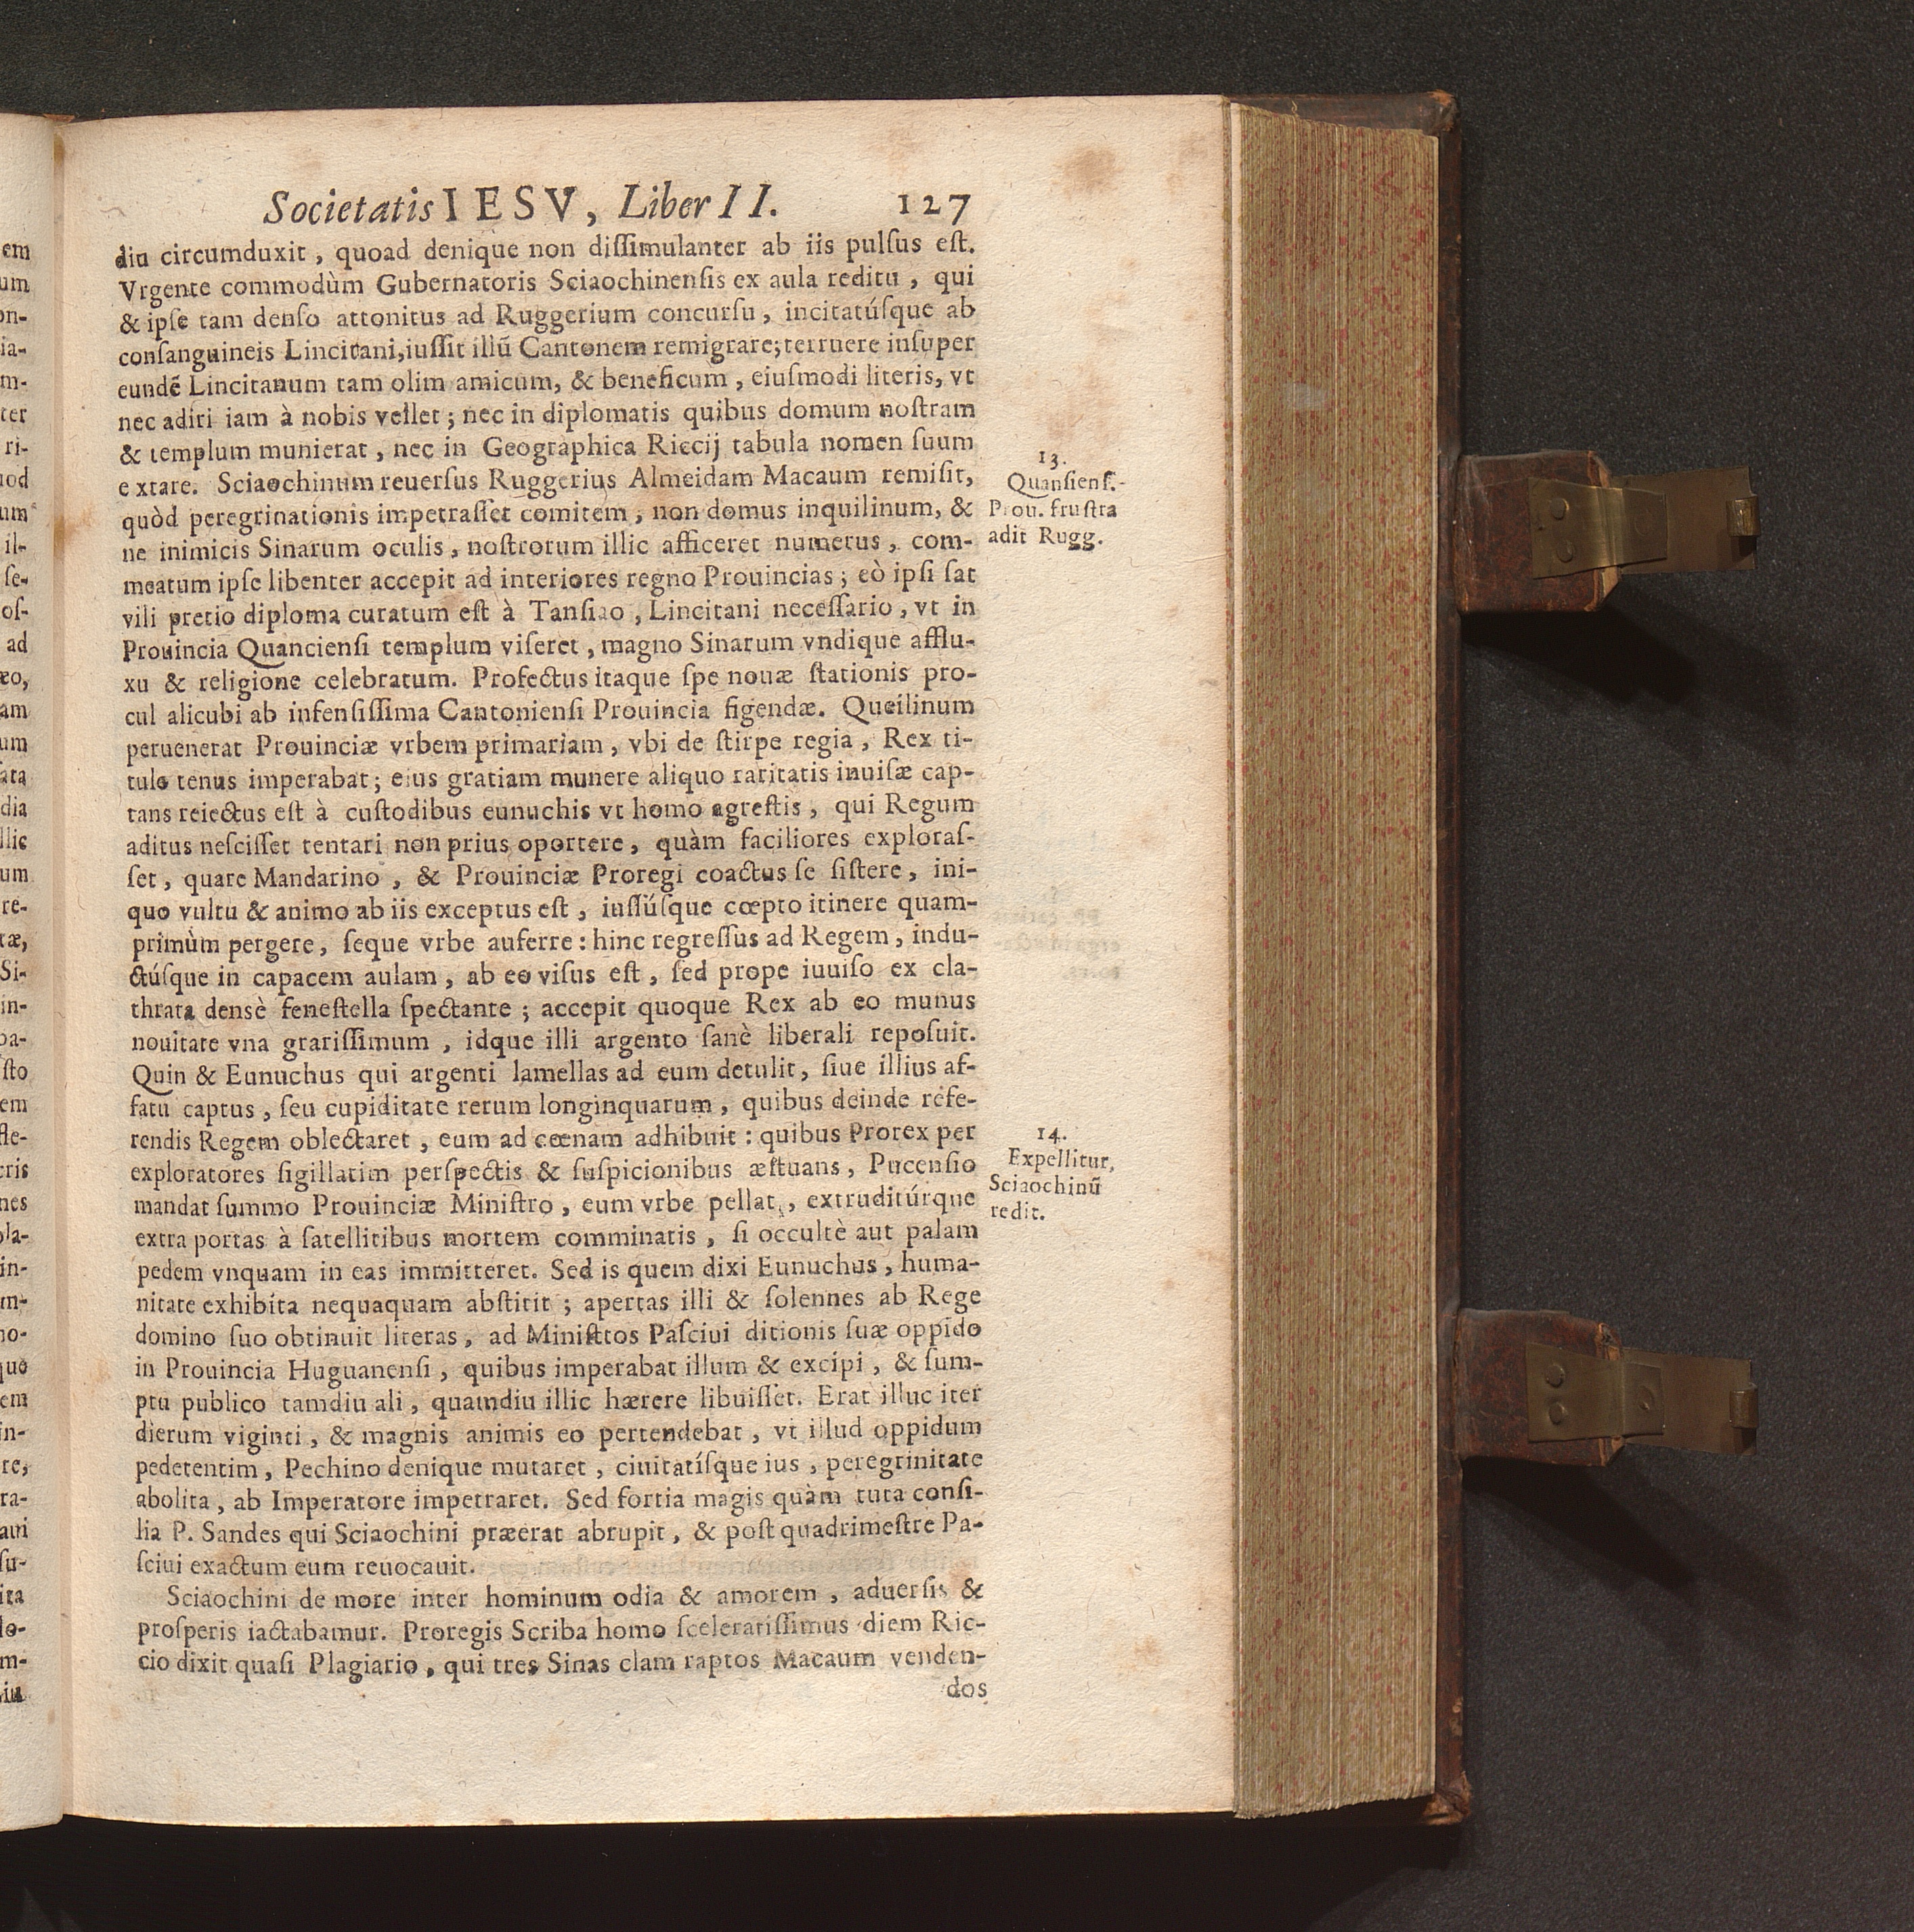 Societatis IESV, Liber II. 127
diu circumduxit, quoad denique non dissimulanter ab iis pulsus est.
Vrgente commodùm Gubernatoris Sciaochinensis ex aula reditu, qui
& ipse tam denso attonitus ad Ruggerium concursu, incitatúsque ab
consanguineis Lincitani, iussit illũ Cantonem remigrare; terruere insuper
eundẽ Lincitanum tam olim amicum, & beneficum, eiusmodi literis, vt
nec adiri iam à nobis vellet; nec in diplomatis quibus domum nostram
& templum munierat, nec in Geographica Riccij tabula nomen suum
extare. Sciaochinum reuersus Ruggerius Almeidam Macaum remisit,
quòd peregrinationis impetrasset comitem, non domus inquilinum, &
ne inimicis Sinarum oculis, nostrorum illic afficeret numerus, com-
meatum ipse libenter accepit ad interiores regno Prouincias; eò ipsi sat
vili pretio diploma curatum est à Tansiao, Lincitani necessario, vt in
Prouincia Quanciensi templum viseret, magno Sinarum vndique afflu-
xu & religione celebratum. Profectus itaque spe nouæ stationis pro-
cul alicubi ab infensissima Cantoniensi Prouincia figendæ. Queilinum
peruenerat Prouinciæ vrbem primariam, vbi de stirpe regia, Rex ti-
tulo tenus imperabat; eius gratiam munere aliquo raritatis inuisæ cap-
tans reiectus est à custodibus eunuchis vt homo agrestis, qui Regum
aditus nescisset tentari non prius oportere, quàm faciliores exploras-
set, quare Mandarino, & Prouinciæ Proregi coactus se sistere, ini-
quo vultu & animo ab iis exceptus est, iussúsque cœpto itinere quam-
primùm pergere, seque vrbe auferre: hinc regressus ad Regem, indu-
ctúsque in capacem aulam, ab eo visus est, sed prope iuuiso ex cla-
thrata densè fenestella spectante; accepit quoque Rex ab eo munus
nouitate vna gratissimum, idque illi argento sanè liberali reposuit.
Quin & Eunuchus qui argenti lamellas ad eum detulit, siue illius af-
fatu captus, seu cupiditate rerum longinquarum, quibus deinde refe-
rendis Regem oblectaret, eum ad cœnam adhibuit: quibus Prorex per
exploratores sigillatim perspectis & suspicionibus æstuans, Pucensio
mandat summo Prouinciæ Ministro, eum vrbe pellat, extruditúrque
extra portas à satellitibus mortem comminatis, si occultè aut palam
pedem vnquam in eas immitteret. Sed is quem dixi Eunuchus, huma-
nitate exhibita nequaquam abstitit; apertas illi & solennes ab Rege
domino suo obtinuit literas, ad Ministtos Pasciui ditionis suæ oppido
in Prouincia Huguanensi, quibus imperabat illum & excipi, & sum-
ptu publico tamdiu ali, quamdiu illic hærere libuisset. Erat illuc iter
dierum viginti, & magnis animis eo pertendebat, vt illud oppidum
pedetentim, Pechino denique mutaret, ciuitatísque ius, peregrinitate
abolita, ab Imperatore impetraret. Sed fortia magis quàm tuta consi-
lia P. Sandes qui Sciaochini præerat abrupit, & post quadrimestre Pa-
sciui exactum eum reuocauit.
Sciaochini de more inter hominum odia & amorem, aduersis &
prosperis iactabamur. Proregis Scriba homo sceleratissimus diem Ric-
cio dixit quasi Plagiario, qui tres Sinas clam raptos Macaum venden-
dos
13.
Quansiens.
Prou. frustra
adit Rugg.
14.
Expellitur,
Sciaochinũ
redit.